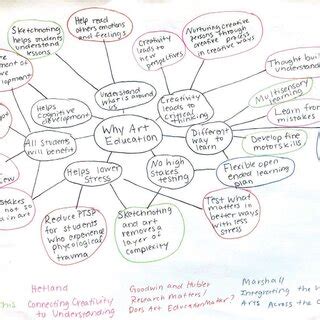 Sketchnoting
helps students
understand
lessons
Help read
others emotions
and feelings
Creativity
leads to
new
perspectives
Nurturing creative
persons through
creative process
in creative ways
Thought
understand
Multisensory
learning
Learn from
mistakes
Develop fine
motor skills
Flexible open
ended learning
plan
Test what
matters in
better ways
with less
stress
ment of
ve
elopment
Helps
cognitive
development
Understand
what is around
us
Creativity
leads to
critical
thinking
Why Art
Education
Different
way to
learn
All students
will benefit
Helps lower
stress
No high
stakes
testing
stakes
not so
in art
Reduce PTSD
for students
who experience
physiological
trauma
Sketchnoting
and art
removes a
layer of
complexity
Hetland
Connecting Creativity
to Understanding
Goodwin and Hubler
Research Matters/
Does Art Education Matter?
Marshall
Integrating the
Arts Across the